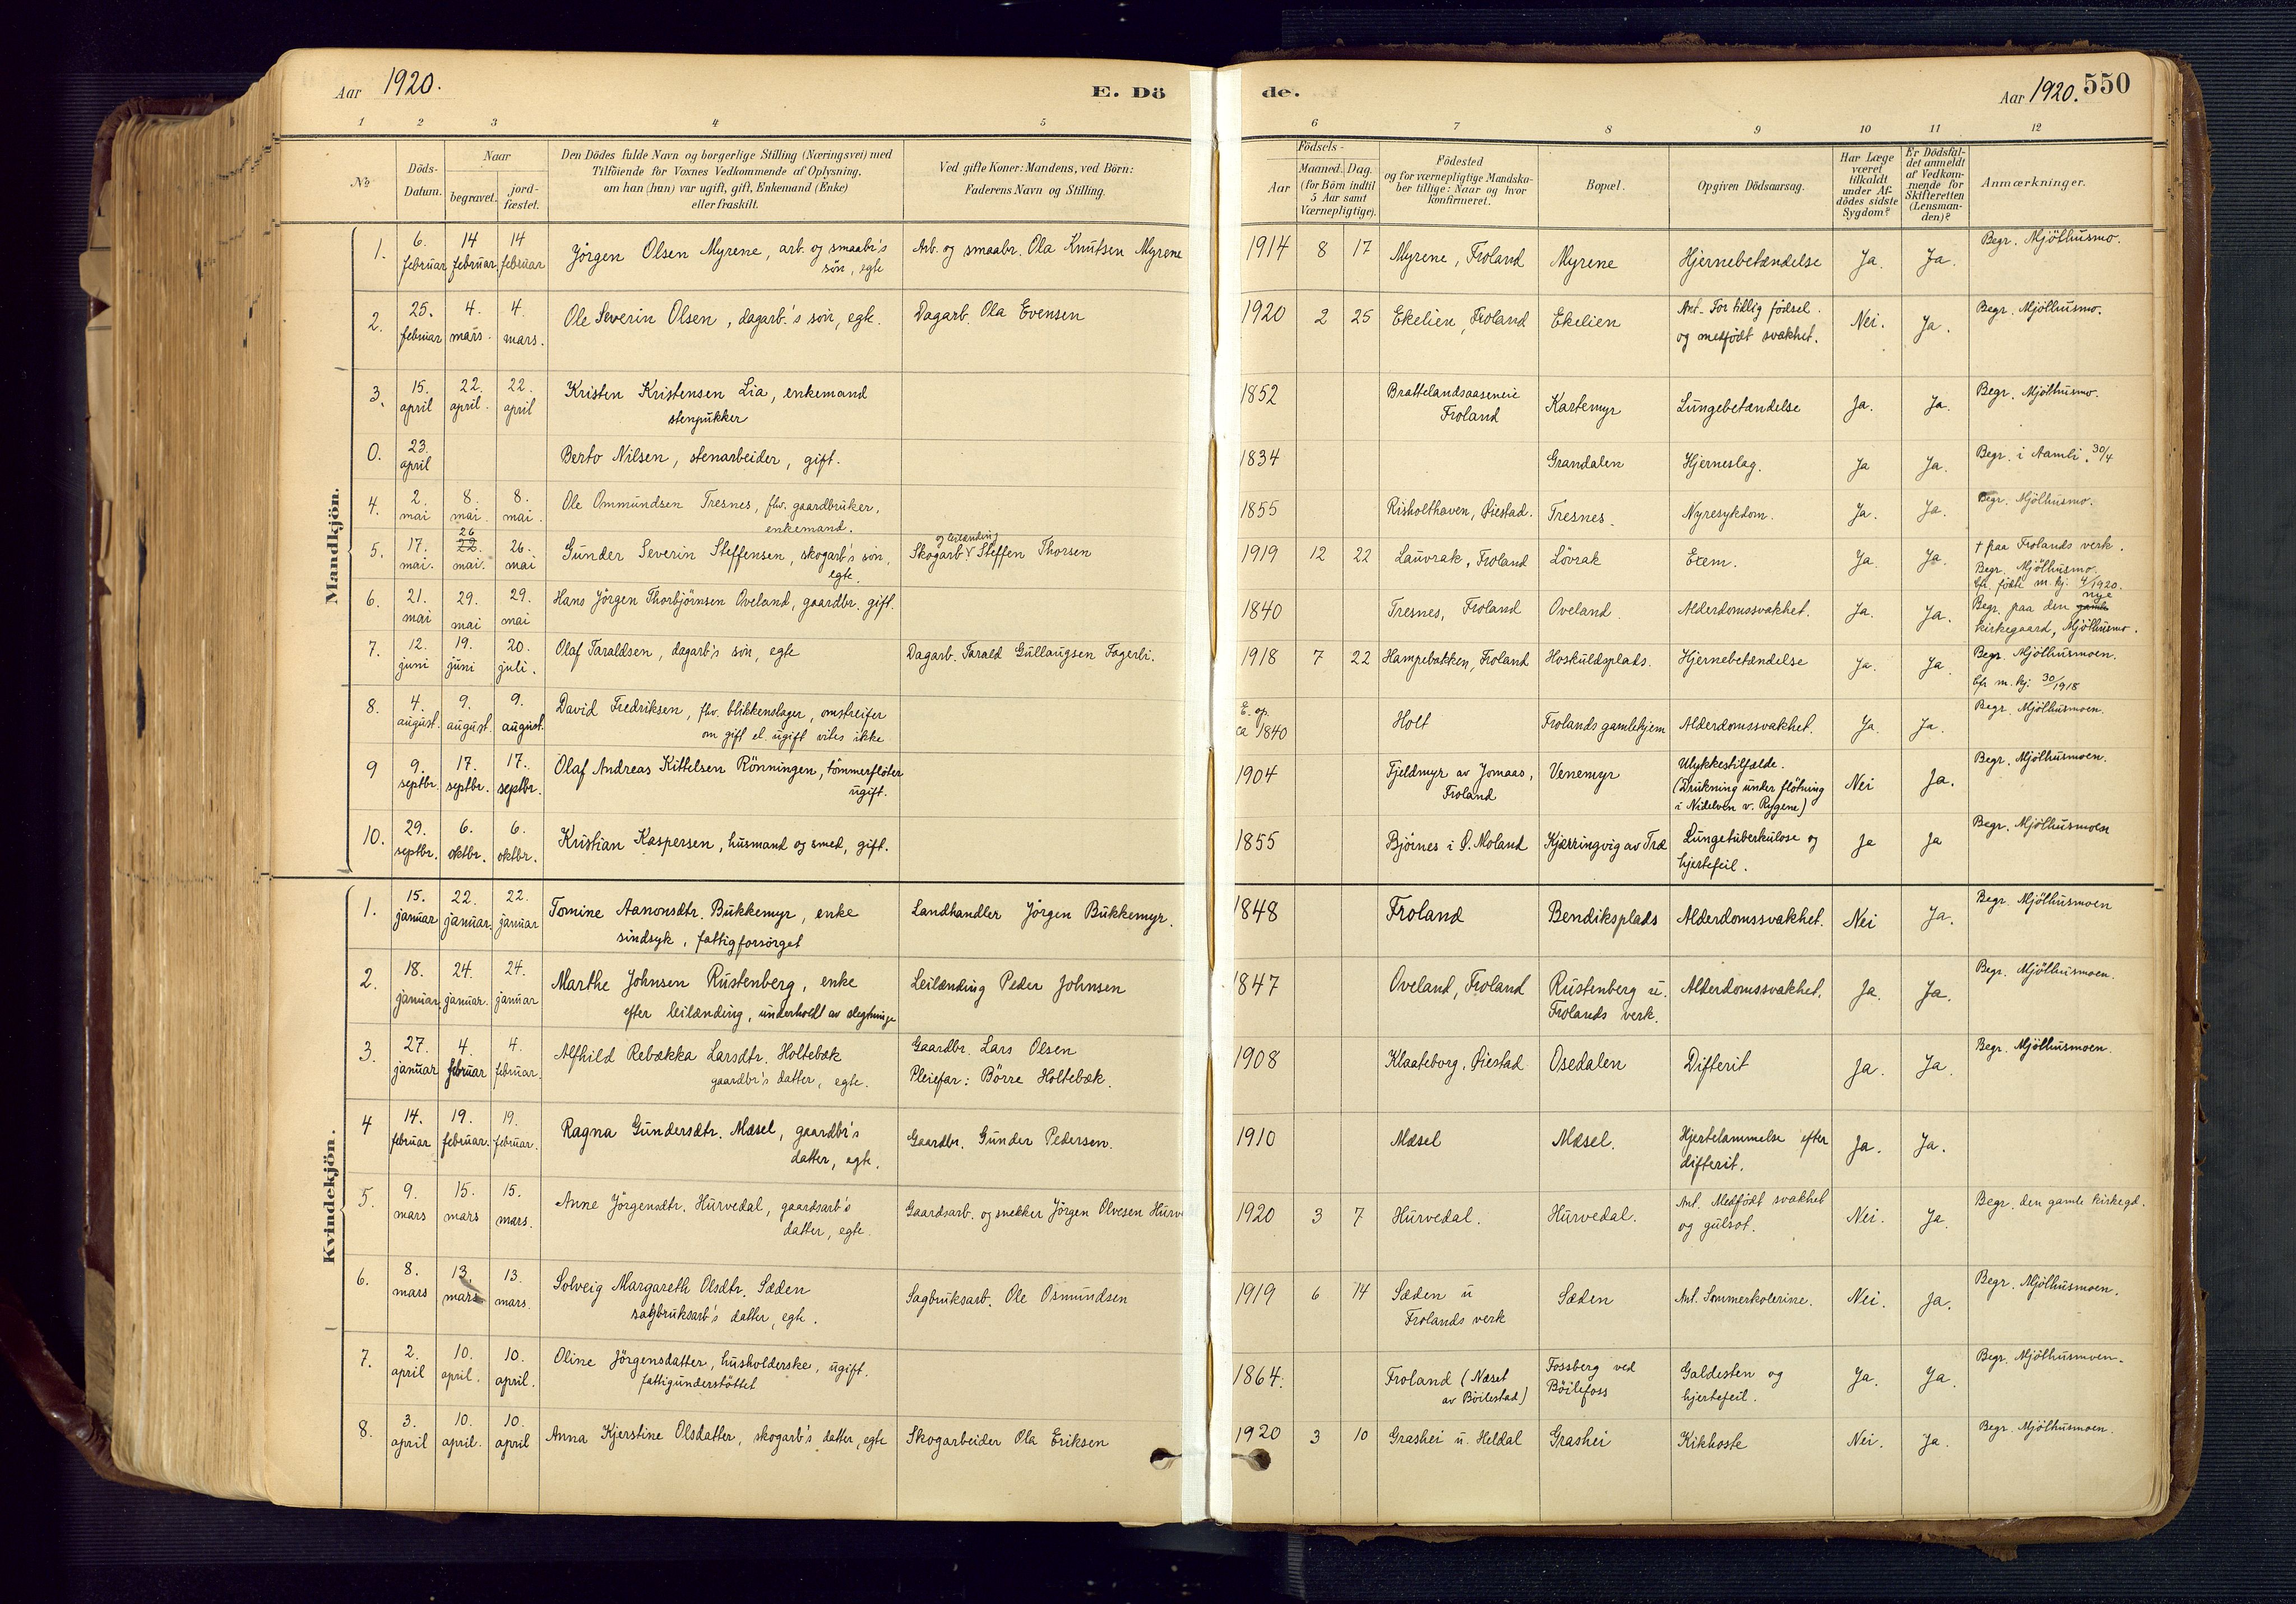 Aar 1920. E. Dö de. Aar 1920. 550
1 2 3 4 5 6 7 8 9 10 11 12
No
Döds-Datum.
Naar
begravet.
jord-fæstet.
Den Dödes fulde Navn og borgerlige Stilling (Næringsvei) med
Tilföiende for Voxnes Vedkommende af Oplysning,
om han (hun) var ugift, gift, Enkemand (Enke)
eller fraskilt.
Ved gifte Koner: Mandens, ved Börn:
Faderens Navn og Stilling.
Födsels-
Aar
Maaned. Dag.
(for Börn indtil
5 Aar samt
Værnepligtige).
Födested
og for værnepligtige Mandska-
ber tillige: Naar og hvor
konfirmeret.
Bopæl.
Opgiven Dödsaarsag.
Har Læge
været
tilkaldt
under Af-
dödes sidste
Sygdom?
Er Dödsfal-
det anmeldt
af Vedkom-
mende for
Skifteretten
(Lensman-
den)?
Anmærkninger.
Mandkjön.
1. 6. februar 14 februar 14 februar Jörgen Olsen Myrene, arb. og smaabr's sön, egte Arb. og smaabr. Ola Knutsen Myrene 1914 8 17 Myrene, Froland Myrene Hjernebetændelse Ja. Ja. Begr. Mjölhusmo.
2. 25. februar 4. mars. 4. mars. Ole Severin Olsen, dagarb.'s sön, egte. Dagarb. Ola Evensen 1920 2 25 Ekelien, Froland Ekelien Ant. For tidlig födsel og medfödt svakhet. Nei. Ja. Begr. Mjölhusmo.
3. 15. april 22. april. 22. april Kristen Kristensen Lia, enkemand stenpukker 1852 Brattelandsaaseneie Froland Kartemyr Lungebetændelse Ja. Ja. Begr. Mjölhusmo.
0. 23. april Berto Nilsen, stenarbeider, gift. 1834 Grandalen Hjerneslag. Ja Ja. Begr. i Aamli. 30/4
4. 2. mai 8. mai. 8. mai. Ole Ommundsen Tresnes, fhv. gaardbruker, enkemand. 1855 Risholthaven, Øiestad. Tresnes. Nyresykdom. Ja. Ja. Begr. Mjölhusmo.
5. 17. mai. 26 22. mai. 26. mai Gunder Severin Steffensen, skogarb's sön, egte. Skogarb. og leilænding Steffen Thorsen 1919 12 22 Lauvrak, Froland Lövrak Exem. Ja. Ja. † paa Frolands verk. Begr. Mjölhusmo. Cfr. födte m. kj. 4/1920.
6. 21. mai 29. mai 29. mai Hans Jörgen Thorbjörnsen Oveland, gaardbr. gift. 1840 Tresnes, Froland Oveland. Alderdomssvakhet. Ja. Ja. Begr. paa den gamle nye kirkegaard, Mjölhusmo.
7. 12. juni 19. juni 20. juli. Olaf Taraldsen, dagarb's sön, egte Dagarb. Tarald Gullaugsen Fagerli. 1918 7 22 Hampebakken, Froland Hoskuldsplads. Hjernebetændelse Ja. Ja Begr. Mjölhusmoen. Cfr m. kj. 30/1918
8. 4. august. 9. august. 9. august. David Fredriksen, fhv. blikkenslager, omstreifer om gift el. ugift vites ikke E. op. ca 1840 Holt Frolands gamlehjem Alderdomssvakhet. Ja. Ja. Begr. Mjölhusmoen.
9 9. septbr. 17. septbr. 17. septbr. Olaf Andreas Kittelsen Rönningen, tömmerflöter ugift. 1904 Fjeldmyr av Jomaas, Froland Venemyr Ulykkestilfælde. (Drukning under flötning i Nidelven v. Rygene) Nei Ja. Begr. Mjölhusmoen.
10. 29. septbr. 6. oktbr. 6. oktbr. Kristian Kaspersen, husmand og smed, gift. 1855 Bjórnes i Ö. Moland Kjærringvig av Træ Lungetuberkulose og hjertefeil. Ja Ja Begr. Mjölhusmoen
Kvindekjön.
1. 15. januar 22. januar. 22. januar Tomine Aanonsdtr. Bukkemyr, enke sindsyk, fattigforsörget Landhandler Jörgen Bukkemyr. 1848 Froland Bendiksplads Alderdomssvakhet. Nei Ja. Begr. Mjölhusmoen
2. 18. januar. 24. januar. 24. januar Marthe Johnsen Rustenberg, enke efter leilænding, underholdt av slegtninge Leilænding Peder Johnsen 1847 Oveland, Froland Rustenberg u. Frolands verk. Alderdomssvakhet. Ja. Ja. Begr. Mjölhusmoen.
3. 27. januar 4. februar 4. februar. Alfhild Rebækka Larsdtr. Holtebæk gaardbr's datter, egte. Gaardbr. Lars Olsen Pleiefar: Börre Holtebæk. 1908 Klaateborg, Øiestad Osedalen Difterit Ja. Ja. Begr. Mjölhusmoen.
4 14. februar 19. februar. 19. februar. Ragna Gundersdtr. Mæsel, gaardbr's datter, egte. Gaardbr. Gunder Pedersen. 1910 Mæsel Mæsel. Hjertelammelse efter difterit. Ja. Ja.
5. 9. mars 15. mars 15. mars. Anne Jörgensdtr. Hurvedal, gaardsarb's datter, egte. Gaardsarb. og snekker Jörgen Olvesen Hurv 1920 3 7 Hurvedal. Hurvedal. Ant. Medfödt svakhet og gulsot. Nei. Ja. Begr. den gamle kirkegd.
6. 8. mars 13. mars 13. mars. Solveig Margareth Olsdtr. Sæden sagbruksarb's datter, egte. Sagbruksarb. Ole Osmundsen 1919 6 14 Sæden u Frolands verk Sæden Ant. Sommerkolerine. Nei. Ja. Begr. Mjölhusmoen.
7. 2. april 10. april. 10. april. Oline Jörgensdatter, husholderske, ugift. fattigunderstöttet 1864. Froland (Næset av Böilestad) Fossberg ved Böilefoss Galdesten og hjertefeil. Ja. Ja. Begr. Mjölhusmoen.
8. 3. april 10. april. 10. april Anna Kjerstine Olsdatter, skogarb's datter, egte Skogarbeider Ola Eriksen 1920 3 10 Grashei u. Heldal Grashei Kikhoste Nei. Ja. Begr. Mjölhusmoen.